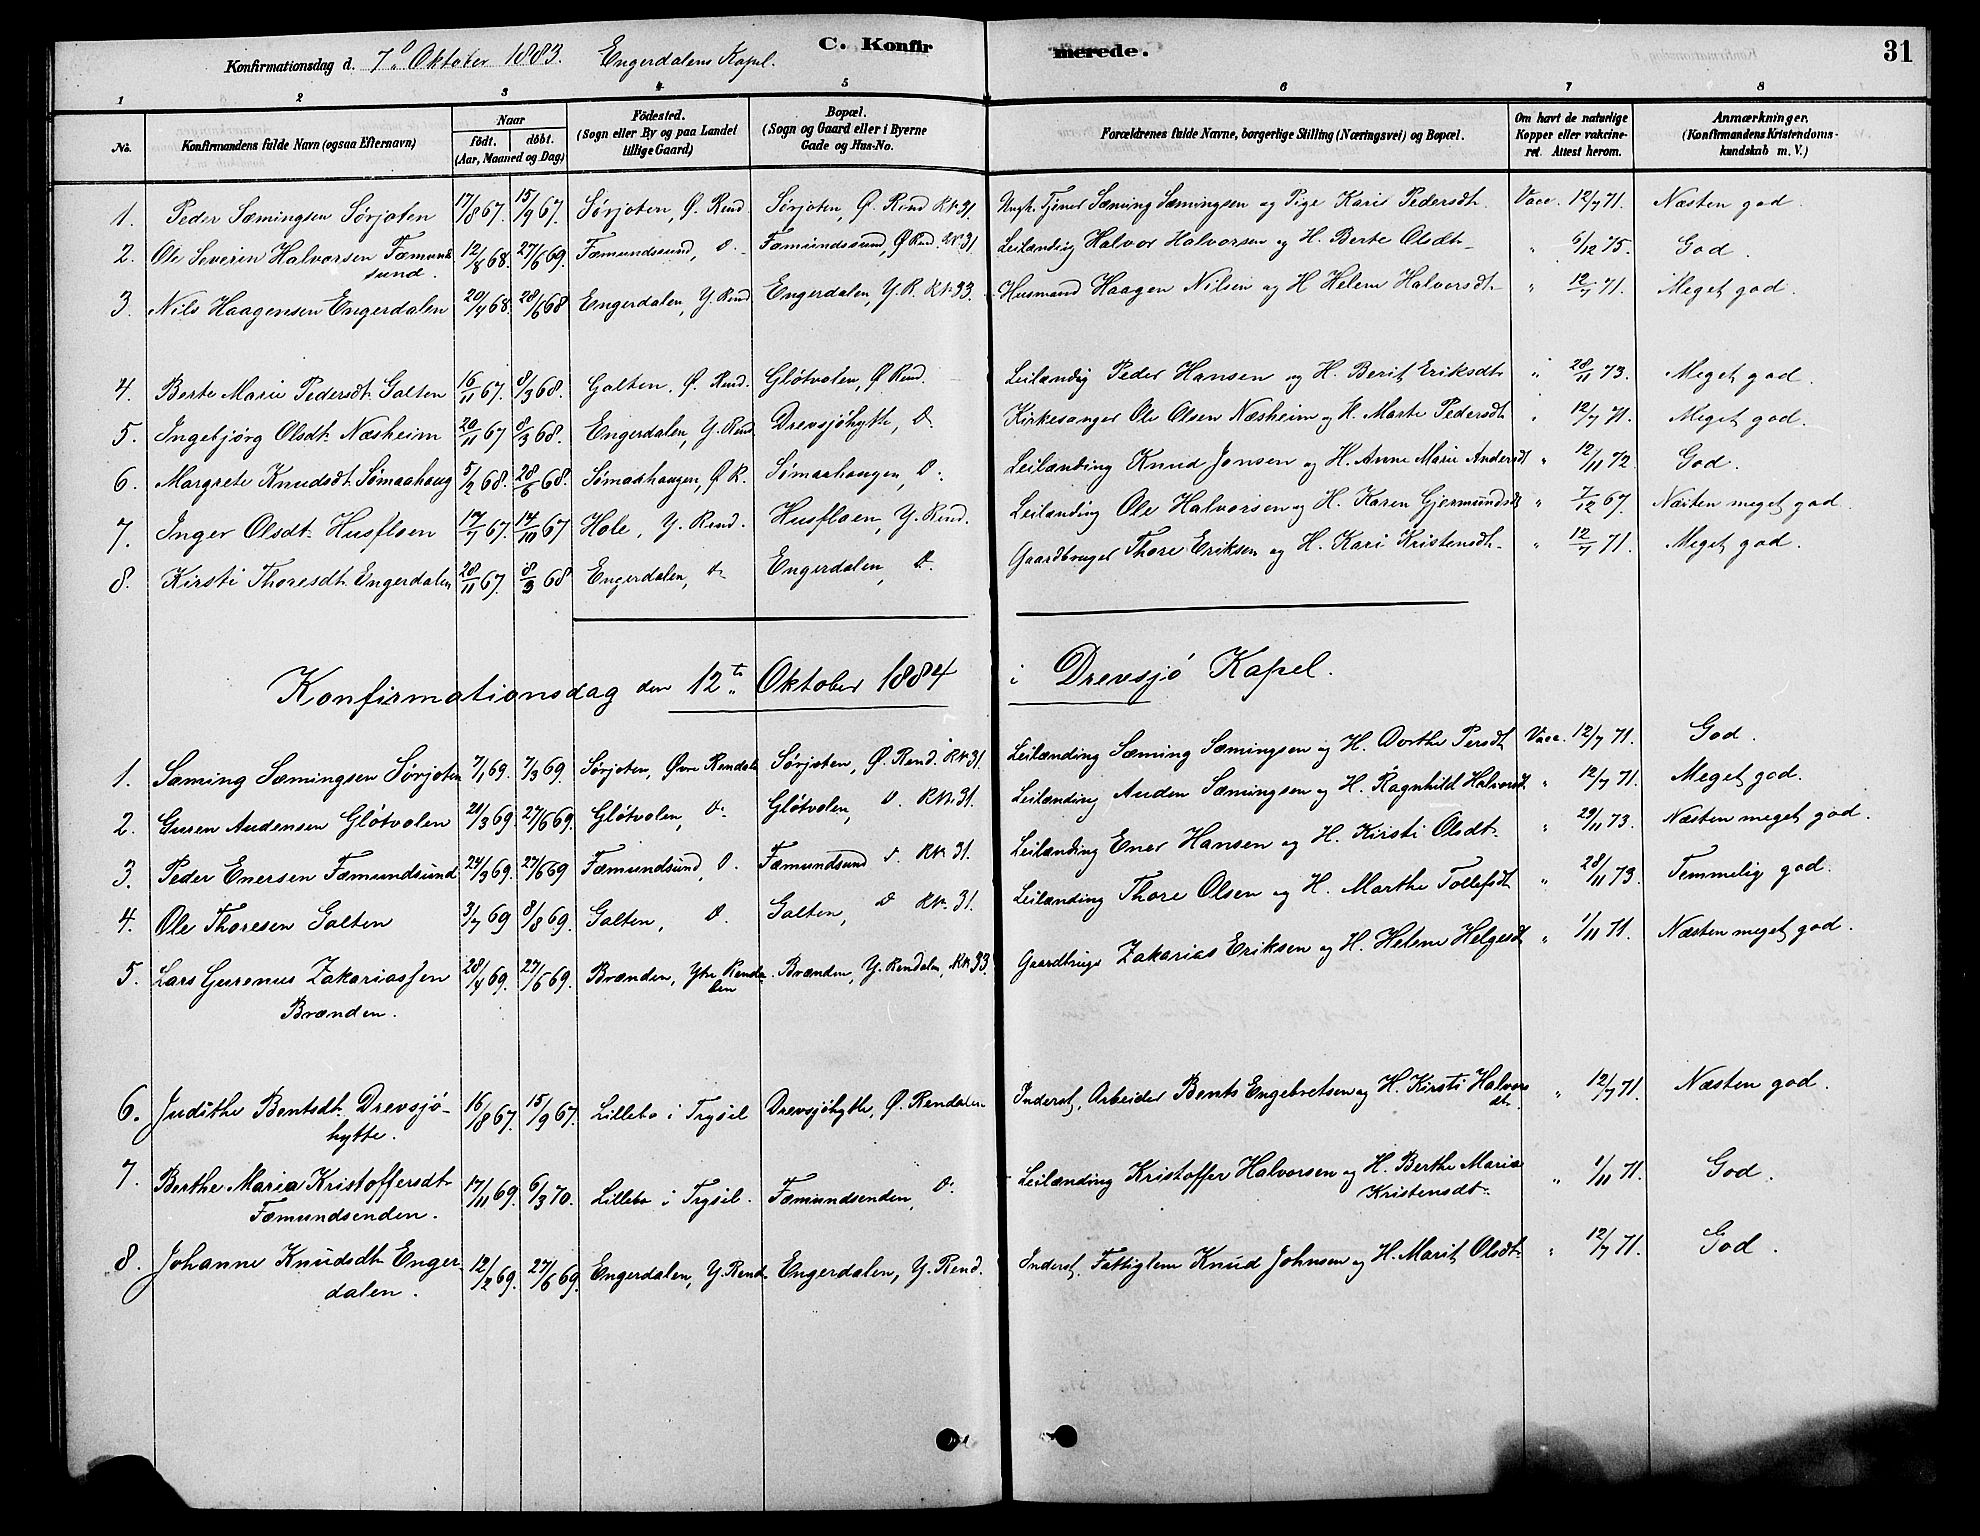 C. Konfirmerede. 31
Konfirmationsdag d. 7de Oktober 1883. Engerdalens Kapel.
1 2 3 4 5 6 7 8
No. Konfirmandens fulde Navn (ogsaa Efternavn) Naar født. døbt. (Aar, Maaned og Dag) Fødested. (Sogn eller By og paa Landet tillige Gaard) Bopæl. (Sogn og Gaard eller i Byerne Gade og Hus-No. Forældrenes fulde Navne, borgerlige Stilling (Næringsvei) og Bopæl. Om havt de naturlige Kopper eller vakcineret. Attest herom. Anmærkninger. (Konfirmandens Kristendomskundskab m. V.)
1. Peder Sæmingsen Sørjoten 17/8 67. 15/9 67. Sørjoten, Ø. Rend. Sørjoten, Ø. Rend Kr. 31. Ungk. Tjener Sæming Sæmingsen og Pige Karis Pedersdt. Vacc. 12/7 71. Næsten god.
2. Ole Severin Halvorsen Fæmundsund. 12/8 68. 27/6 69. Fæmundssund, D. Fæmundssund, Ø Rend. Kr. 31. Leilænding Halvor Halvorsen og H. Berte Olsdt. " 6/12 75. God.
3. Nils Haagensen Engerdalen 20/4 68. 28/6 68 Engerdalen, Y. Rend. Engerdalen, Y. R. Kr. 33. Husmand Haagen Nilsen og H Helene Halvorsdt. " 12/7 71. Meget god.
4. Berte Marie Pedersdt. Galten 16/11 67. 8/3 68. Galten, Ø. Rend. Gløtvolen, Ø Rend. Leilænding Peder Hansen og H. Berit Eriksdt " 28/11 73. Meget god.
5. Ingebjørg Olsdt. Næsheim 20/11 67 8/3 68. Engerdalen, Y. Rend. Drevsjøhytte, D. Kirkesanger Ole Olsen Næsheim og H. Marte Pedersdt " 12/7 71. Meget god.
6. Margrete Knudsdt. Sømaahaug 5/2 68. 28/6 68. Sømaahaugen, Ø R. Sømaahaugen, D. Leilænding Knud Jonsen og H. Anne Marie Andersdt " 12/11 72. God.
7. Inger Olsdt. Husfloen 17/7 67. 14/10 67 Hole, Y. Rend. Husfloen, Y. Rend. Leilænding Ole Halvorsen og H. Karen Gjermundsdt " 7/12 67. Næsten meget god.
8. Kirsti Thoresdt. Engerdalen 28/11 67. 8/3 68 Engerdalen, D. Engerdalen, D. Gaardbruger Thore Eriksen og H. Kari Kristensdt. " 12/7 71. Meget god.
Konfirmationsdag den 12te Oktober 1884 i Drevsjø Kapel.
1. Sæming Sæmingsen Sørjoten 7/1 69. 7/3 69. Sørjoten, Øvre Rendal Sørjoten, Ø. Rend. Kr. 31. Leilænding Sæming Sæmingsen og H. Dorthe Persdt Vacc. 12/7 71. God.
2. Guren Audensen Gløtvolen 21/3 69. 27/6 69. Gløtvolen, D. Gløtvolen, D. Kr. 31. Leilænding Auden Sæmingsen og H. Ragnhild Halvorsdt " 12/7 71. Meget god.
3. Peder Enersen Fæmundsund 24/3 69. 27/6 69 Fæmundsund, D. Fæmundsund D. Kr. 31. Leilænding Ener Hansen og H. Kirsti Olsdt. " 29/11 73. Næsten meget god.
4. Ole Thoresen Galten 3/7 69 8/8 69. Galten, D. Galten, D Kr. 31. Leilænding Thore Olsen og H. Marthe Tollefsdt " 28/11 73. Temmelig god.
5. Lars Gurenus Zakariassen Brænden. 28/4 69. 27/6 69. Brænden, Ytre Rendalen Brænden, Y. Rendalen, Kr. 33. Gaardbruger Zakarias Eriksen og H. Helene Helgesdt " 1/11 71. Næsten meget god.
6. Judithe Bentsdt. Drevsjøhytte. 16/8 67. 15/9 67. Lillebo i Trysil Drevsjøhytte, Ø. Rendalen Inderst, Arbeider Bents Engebretsen og H. Kirsti Halvorsdt. " 12/7 71. Næsten god.
7. Berthe Maria Kristoffersdt. Fæmundsenden. 17/11 69. 6/3 70. Lillebo i Trysil. Fæmundsenden, D. Leilænding Kristoffer Halvorsen og H. Berthe Maria Kristensdt. " 1/11 71. God.
8. Johanne Knudsdt. Engerdalen. 12/2 69. 27/6 69. Engerdalen, Y. Rend. Engerdalen, Y. Rend. Inderst, Fattiglem Knud Johnsen og H. Marit Olsdt. " 12/7 71. God.